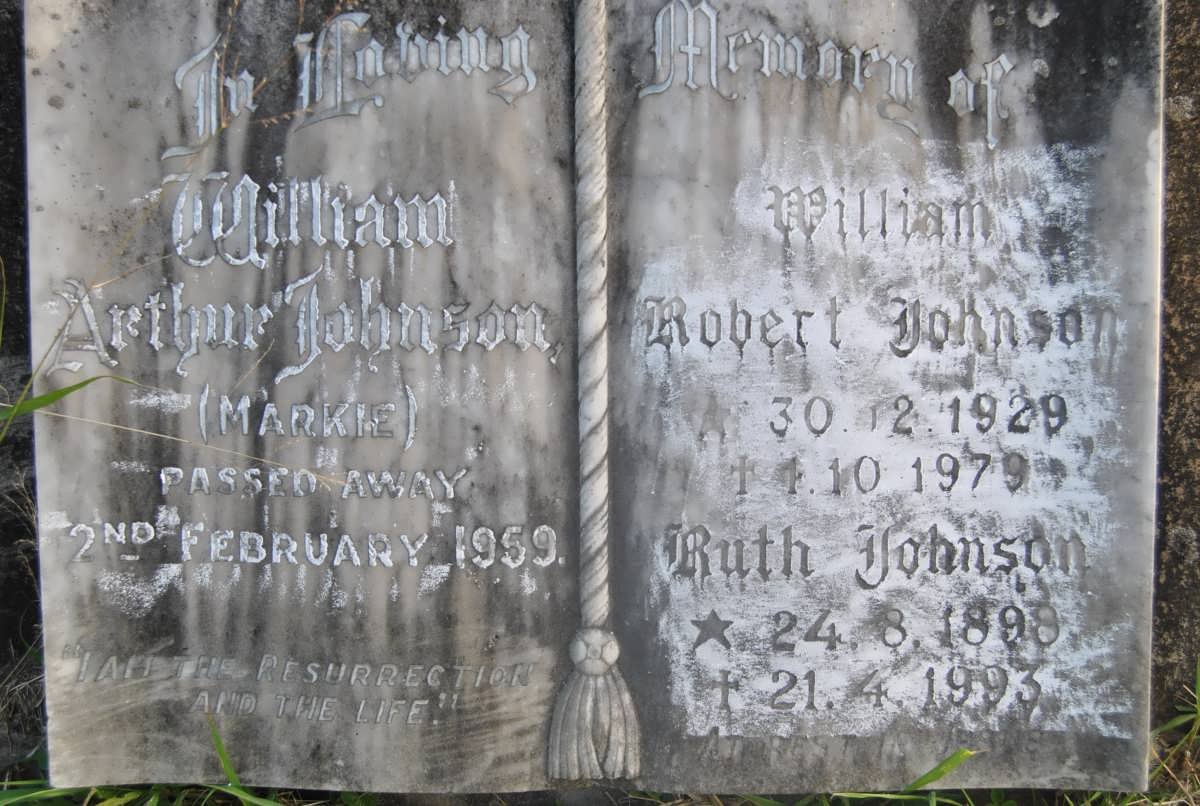 In Loving Memory of
William
Arthur Johnson,
(MARKIE)
PASSED AWAY
2ND FEBRUARY 1959.
"I AM THE RESURRECTION
AND THE LIFE."
William
Robert Johnson
★ 30. 12. 1929
† 1. 10 1979
Ruth Johnson
★ 24. 8. 1898
† 21. 4. 1993